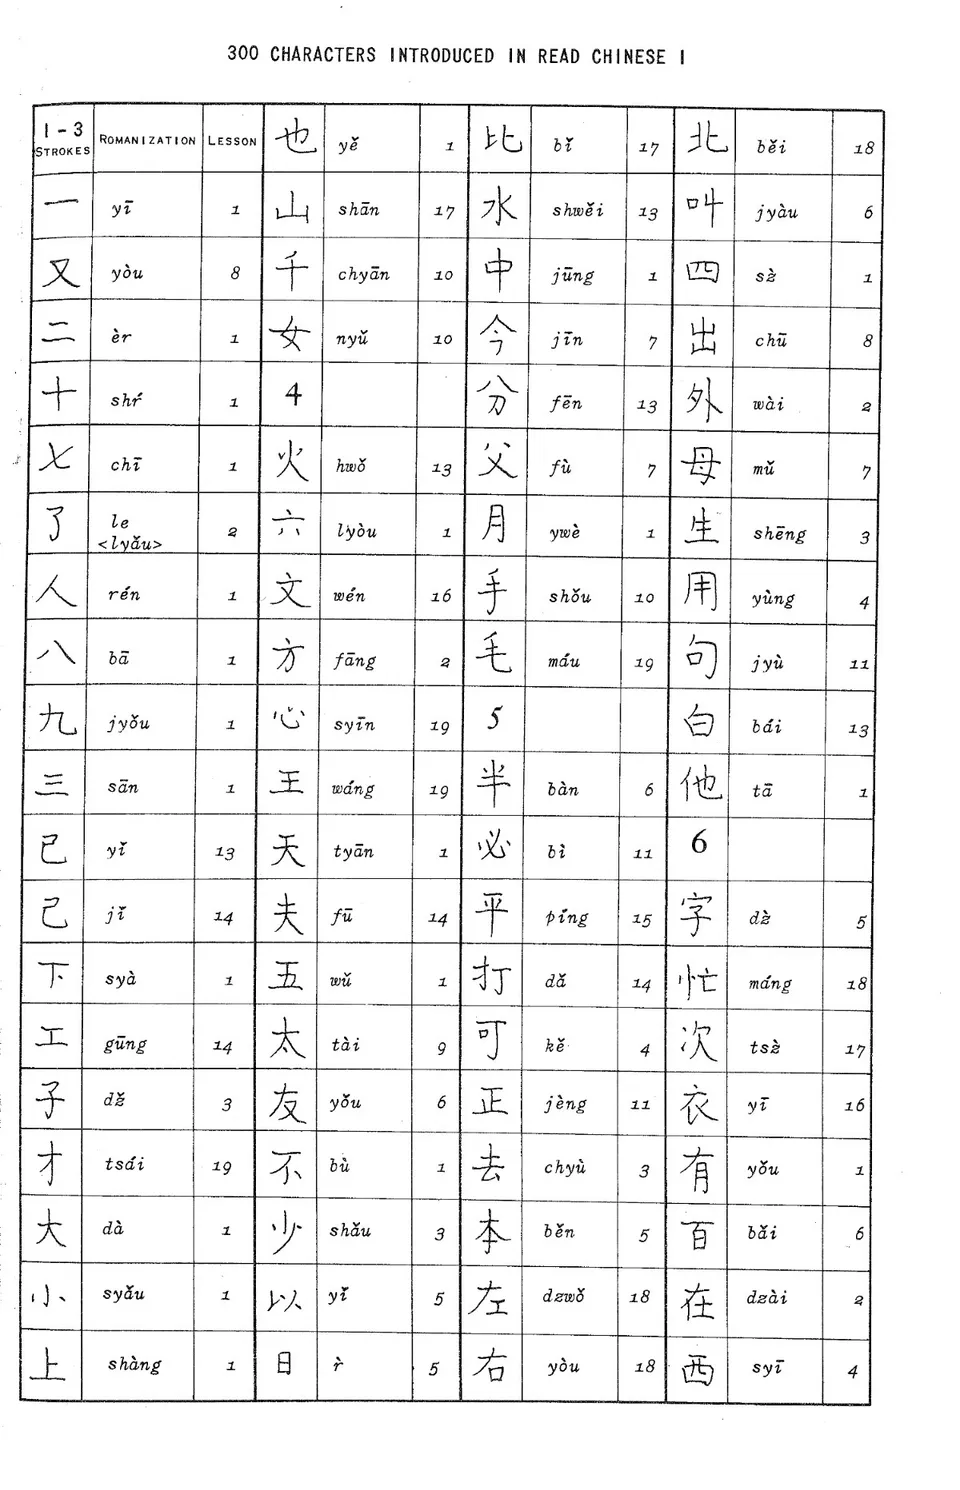 300 CHARACTERS INTRODUCED IN READ CHINESE I
1-3 STROKES ROMANIZATION LESSON
一 yī 1
又 yòu 8
二 èr 1
十 shŕ 1
七 chī 1
了 le <lyǎu> 2
人 rén 1
八 bā 1
九 jyǒu 1
三 sān 1
已 yǐ 13
己 jǐ 14
下 syà 1
工 gūng 14
子 dž 3
才 tsái 19
大 dà 1
小 syǎu 1
上 shàng 1
也 yě 1
山 shān 17
千 chyān 10
女 nyǔ 10
4
火 hwǒ 13
六 lyòu 1
文 wén 16
方 fāng 2
心 syīn 19
王 wáng 19
天 tyān 1
夫 fū 14
五 wǔ 1
太 tài 9
友 yǒu 6
不 bù 1
少 shǎu 3
以 yǐ 5
日 r̀ 5
比 bǐ 17
水 shwěi 13
中 jūng 1
今 jīn 7
分 fēn 13
父 fù 7
月 ywè 1
手 shǒu 10
毛 máu 19
5
半 bàn 6
必 bì 11
平 píng 15
打 dǎ 14
可 kě 4
正 jèng 11
去 chyù 3
本 běn 5
左 dzwǒ 18
右 yòu 18
北 běi 18
叫 jyàu 6
四 sz̀ 1
出 chū 8
外 wài 2
母 mǔ 7
生 shēng 3
用 yùng 4
句 jyù 11
白 bái 13
他 tā 1
6
字 dz̀ 5
忙 máng 18
次 tsz̀ 17
衣 yī 16
有 yǒu 1
百 bǎi 6
在 dzài 2
西 syī 4